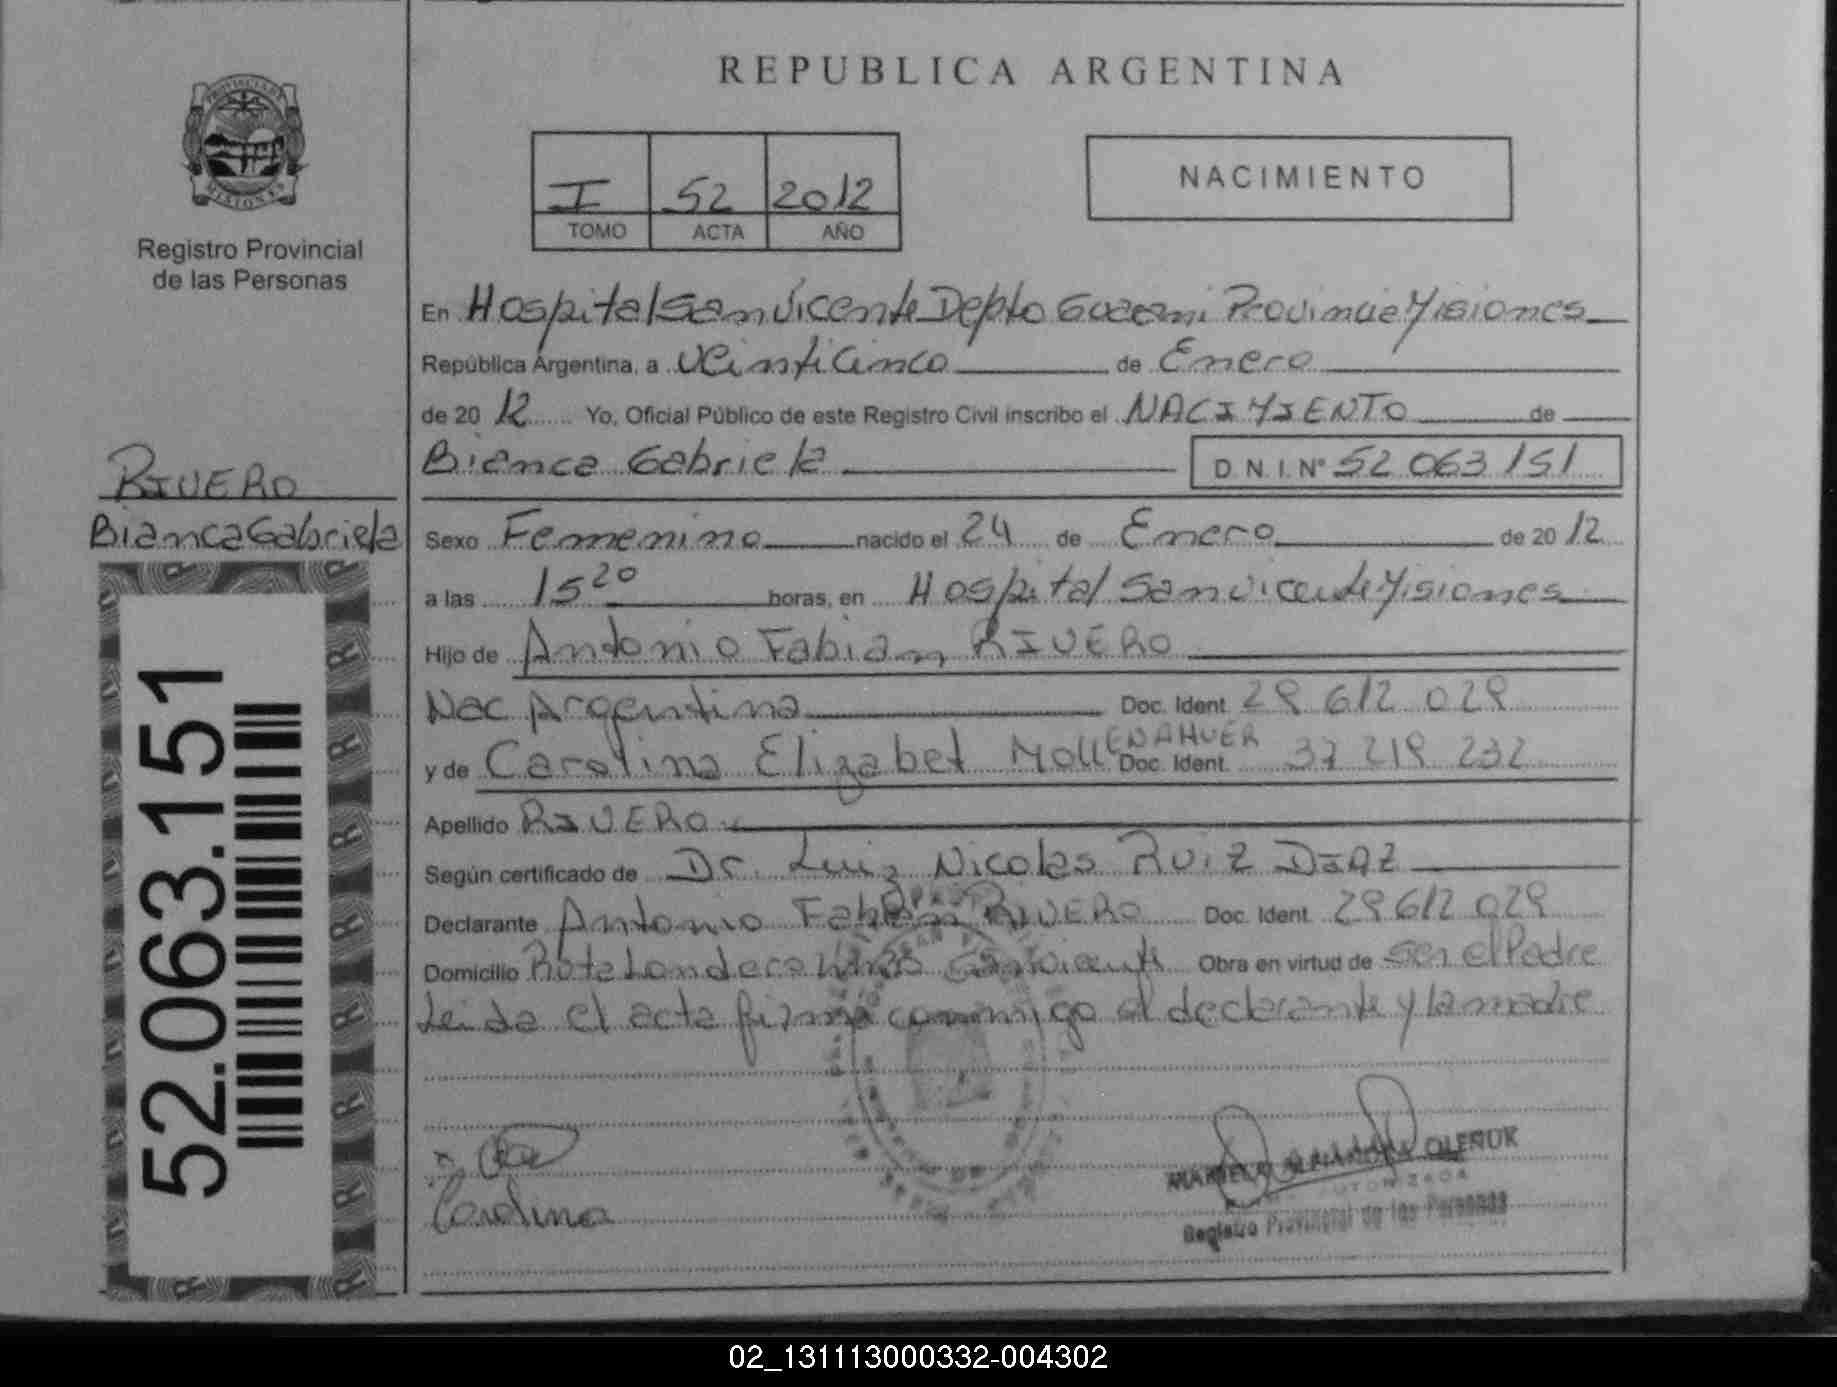 REPUBLICA ARGENTINA
I 52 2012
TOMO ACTA AÑO
NACIMIENTO
PROVINCIA DE MISIONES
Registro Provincial
de las Personas
RIVERO
Bianca Gabriela
52.063.151
En Hospital San Vicente Depto Guarani Provincia Misiones
República Argentina, a veinticinco de Enero
de 20 12 Yo, Oficial Público de este Registro Civil inscribo el NACIMIENTO de
Bianca Gabriela D.N.I. Nº 52 063 151
Sexo Femenino nacido el 24 de Enero de 20 12
a las 15 20 horas, en Hospital San Vicente Misiones
Hijo de Antonio Fabian RIVERO
Nac Argentina Doc. Ident 29 612 029
y de Carolina Elizabet MollENAHUER Doc. Ident. 37 219 232
Apellido RIVERO
Según certificado de Dr. Luiz Nicolas RUIZ DIAZ
Declarante Antonio Fabian RIVERO Doc. Ident. 29 612 029
Domicilio Ruta Londero San Vicente Obra en virtud de ser el Padre
Leida el acta firma conmigo el declarante y la madre
Carolina
OLENUK
AUTORIZADA
Registro Provincial de las Personas
02_131113000332-004302